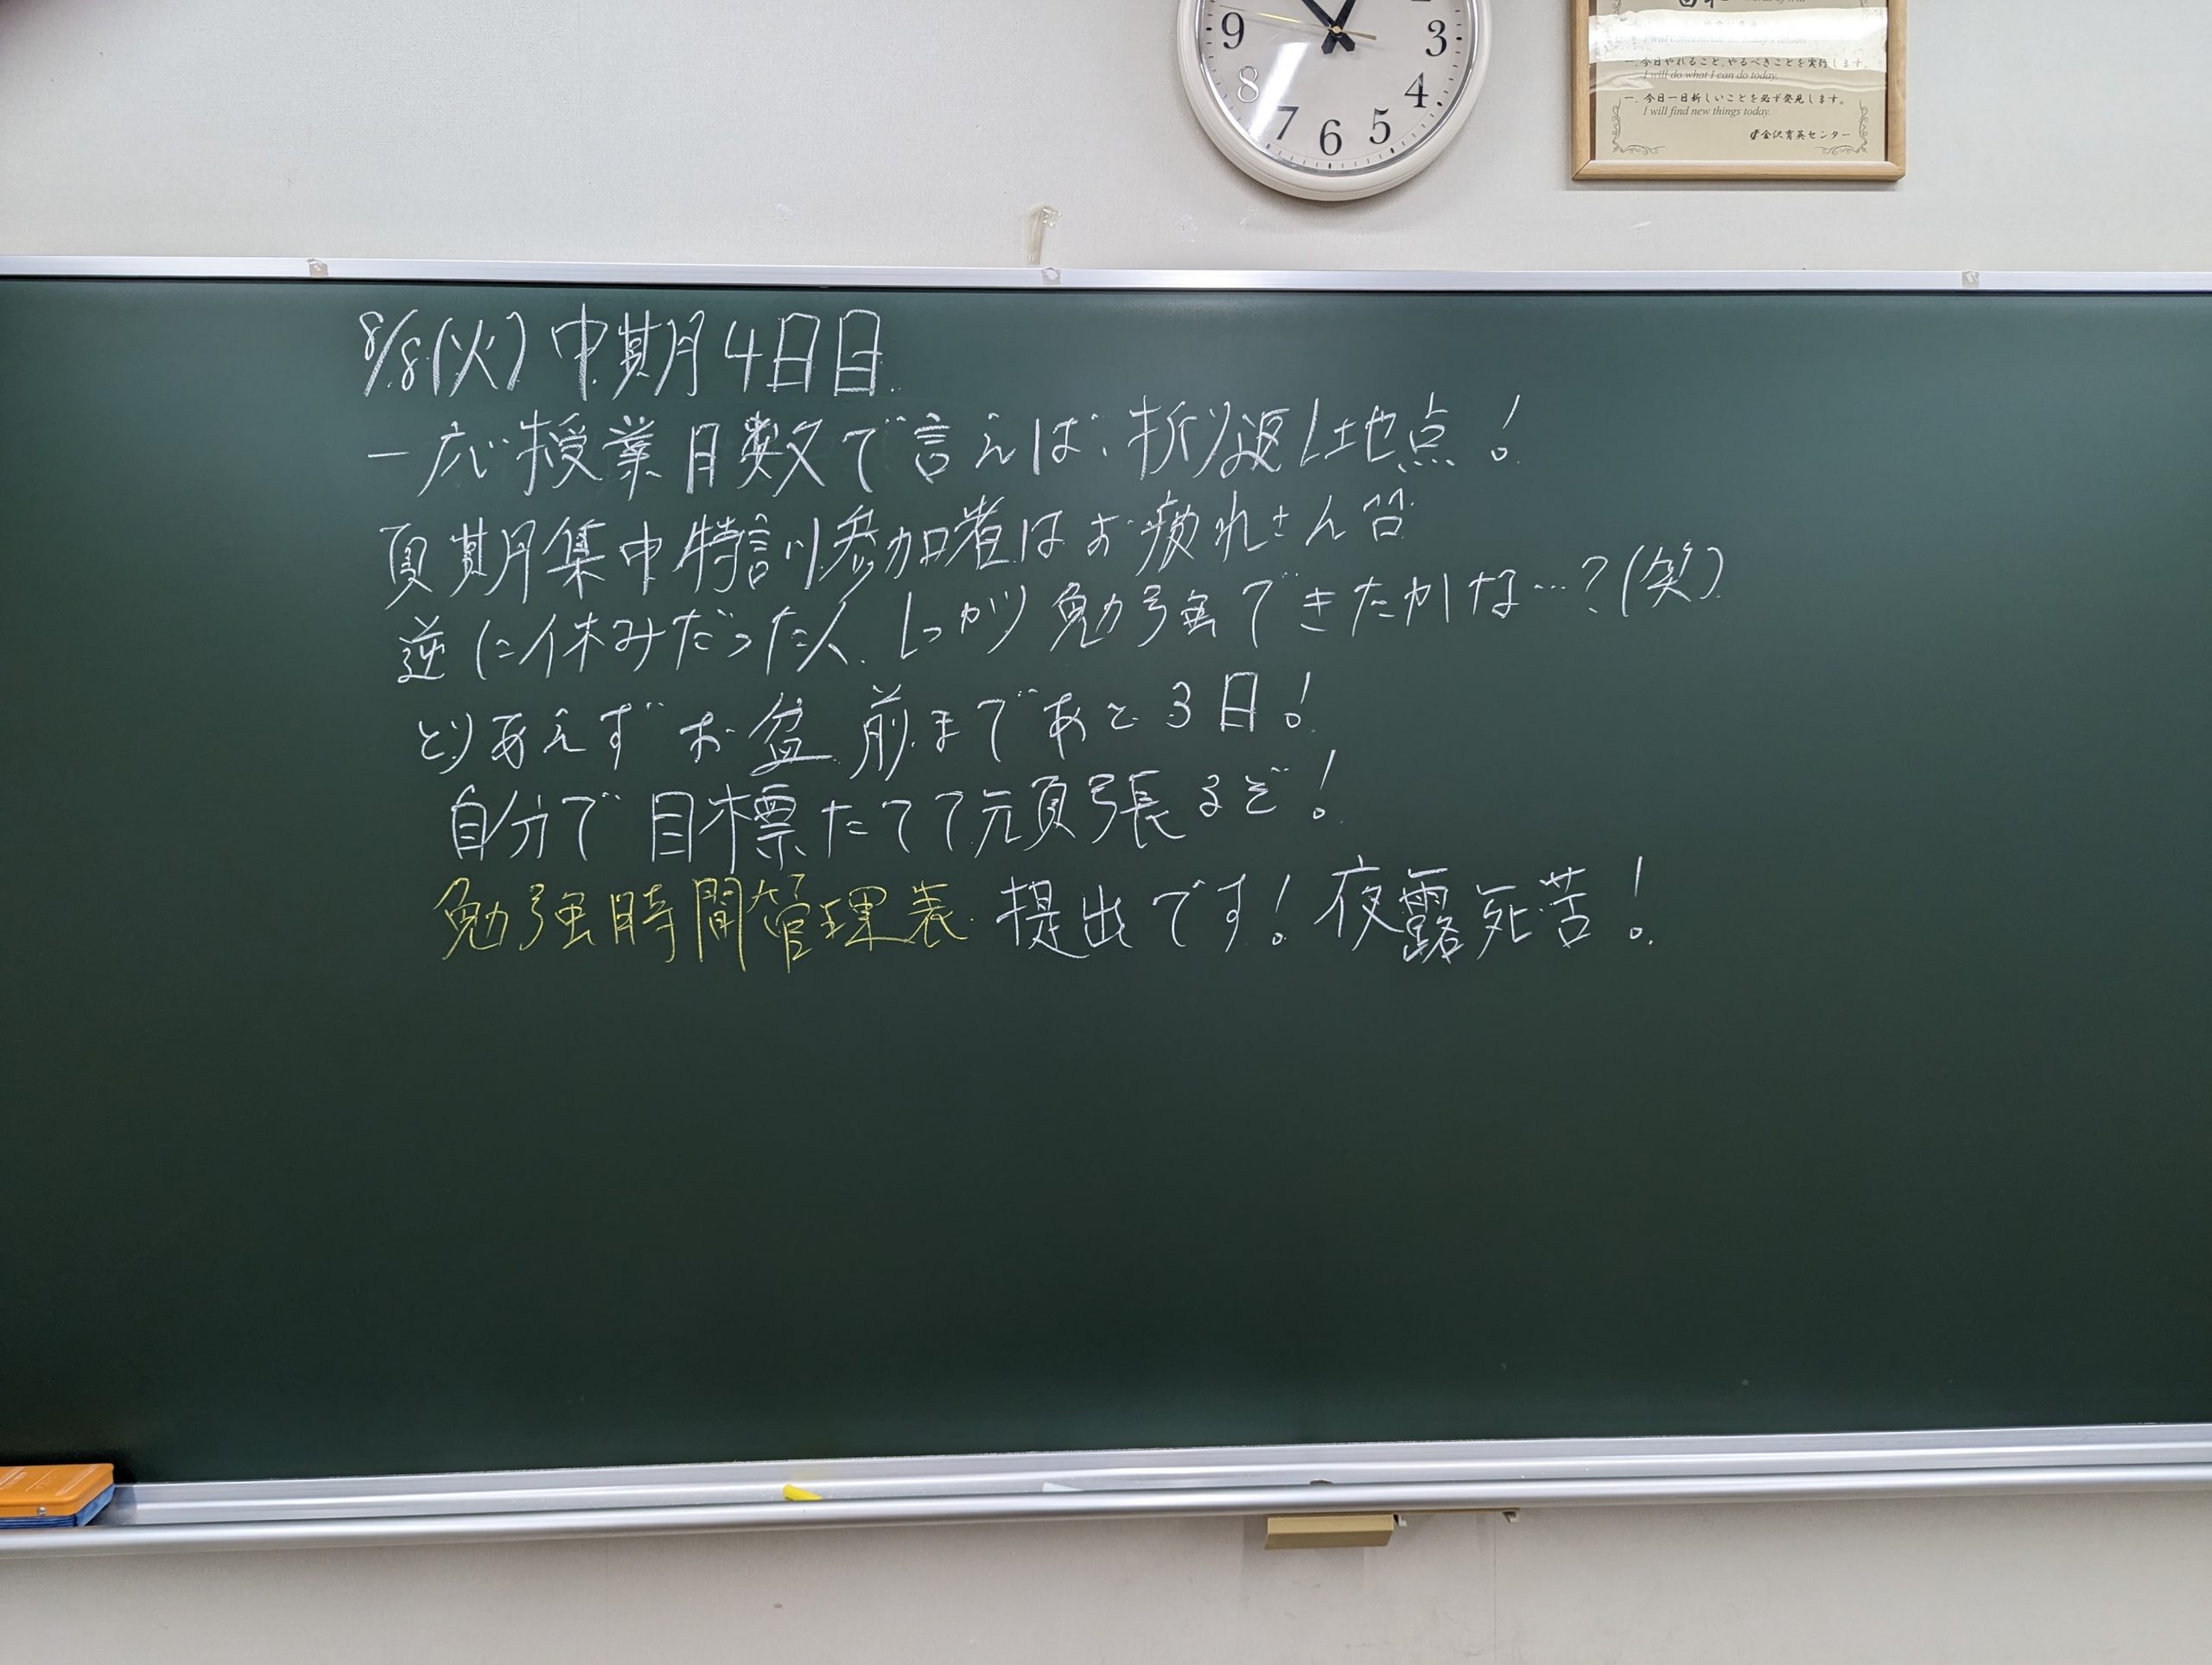 9
3
8
4
7
6
5
words of will
一. 今日やれること、やるべきことを実行します。
I will do what I can do today.
一. 今日一日新しいことを必ず発見します。
I will find new things today.
金沢育英センター
8/8(火) 中期4日目
一応授業日数で言えば、折り返し地点!
夏期集中特訓参加者はお疲れさん^^
逆に休みだった人、しっかり勉強できたかな…?(笑)
とりあえずお盆前まであと3日!
自分で目標たてて頑張るぞ!
勉強時間管理表 提出です! 夜露死苦!